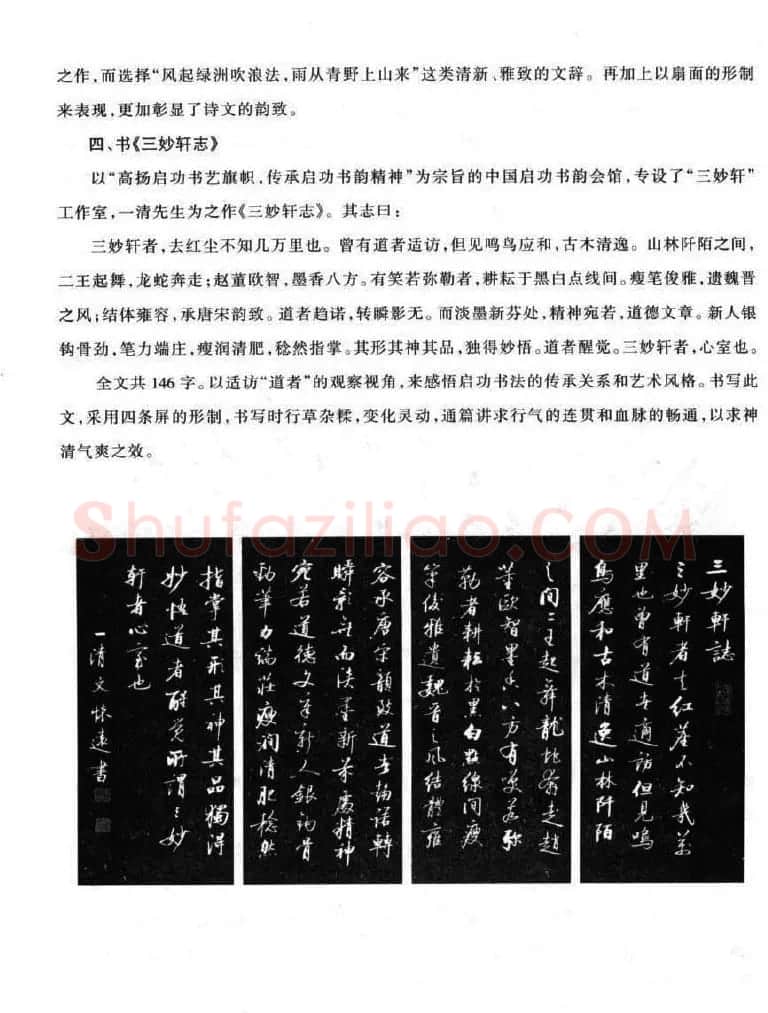 之作,而选择“风起绿洲吹浪法,雨从青野上山来”这类清新、雅致的文辞。再加上以扇面的形制
来表现,更加彰显了诗文的韵致。
四、书《三妙轩志》
以“高扬启功书艺旗帜,传承启功书韵精神”为宗旨的中国启功书韵会馆,专设了“三妙轩”
工作室,一清先生为之作《三妙轩志》。其志曰:
三妙轩者,去红尘不知几万里也。曾有道者适访,但见鸣鸟应和,古木清逸。山林阡陌之间,
二王起舞,龙蛇奔走;赵董欧智,墨香八方。有笑若弥勒者,耕耘于黑白点线间。瘦笔俊雅,遗魏晋
之风;结体雍容,承唐宋韵致。道者趋诺,转瞬影无。而淡墨新芬处,精神宛若,道德文章。新人银
钩骨劲,笔力端庄,瘦润清肥,稔然指掌。其形其神其品,独得妙悟。道者醒觉。三妙轩者,心室也。
全文共146字。以适访“道者”的观察视角,来感悟启功书法的传承关系和艺术风格。书写此
文,采用四条屏的形制,书写时行草杂糅,变化灵动,通篇讲求行气的连贯和血脉的畅通,以求神
清气爽之效。
Shufaziliao.COM
三妙軒誌
三妙軒者去红塵不知幾萬
里也曾有道者適訪但見鳴
鳥應和古木清逸山林阡陌
之间二王起舞龍蛇奔走趙
董歐智墨香八方有笑若弥
勒者耕耘於黑白點線间瘦
筆俊雅遺魏晋之风结體雍
容承唐宋韻致道者趋诺轉
瞬影無而淡墨新芬處精神
宛若道德文章新人銀钩骨
勁筆力端莊瘦润清肥稔然
指掌其形其神其品獨得
妙悟道者醒觉所謂三妙
軒者心室也
一清文怀遠書